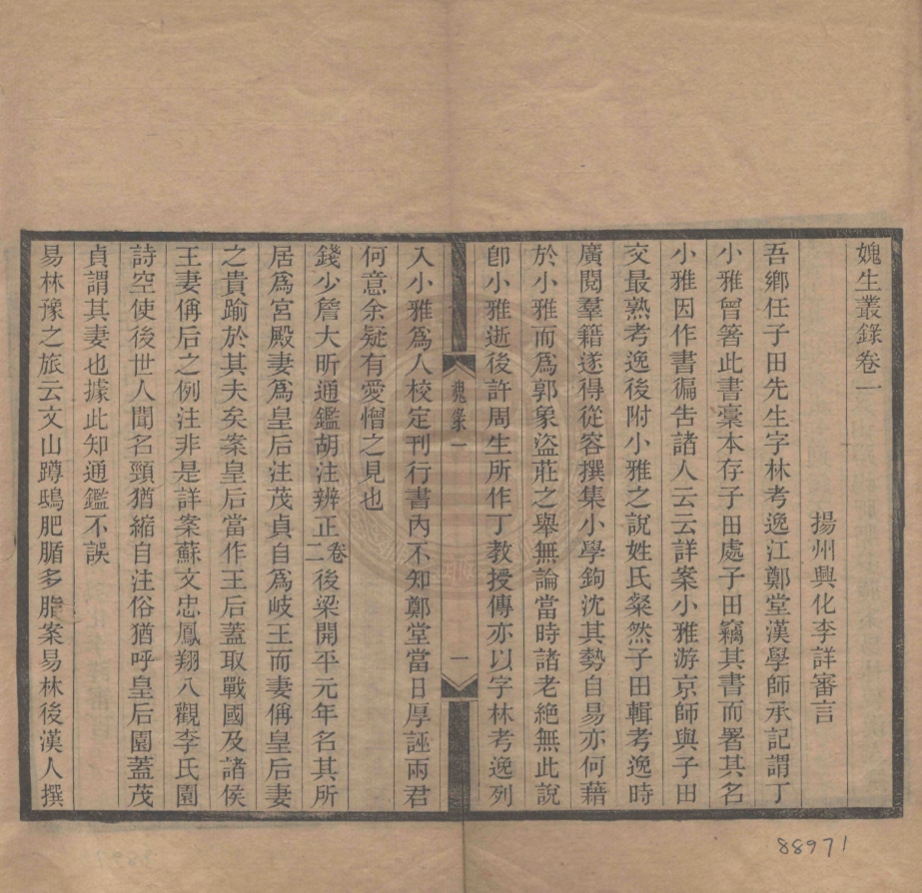 媿生叢錄卷一
揚州興化李詳審言
吾鄉任子田先生字林考逸江鄭堂漢學師承記謂丁
小雅曾箸此書稾本存子田處子田竊其書而署其名
小雅因作書徧告諸人云云詳案小雅游京師與子田
交最熟考逸後附小雅之說姓氏粲然子田輯考逸時
廣閱羣籍遂得從容撰集小學鉤沈其勢自易亦何藉
於小雅而爲郭象盜莊之舉無論當時諸老絕無此說
卽小雅逝後許周生所作丁教授傳亦以字林考逸列
媿錄一
一
入小雅爲人校定刊行書內不知鄭堂當日厚誣兩君
何意余疑有愛憎之見也
錢少詹大昕通鑑胡注辨正二卷後梁開平元年名其所
居爲宮殿妻爲皇后注茂貞自爲岐王而妻偁皇后妻
之貴踰於其夫矣案皇后當作王后蓋取戰國及諸侯
王妻偁后之例注非是詳案蘇文忠鳳翔八觀李氏園
詩空使後世人聞名頸猶縮自注俗猶呼皇后園蓋茂
貞謂其妻也據此知通鑑不誤
易林豫之旅云文山蹲鴟肥腯多脂案易林後漢人撰
88971